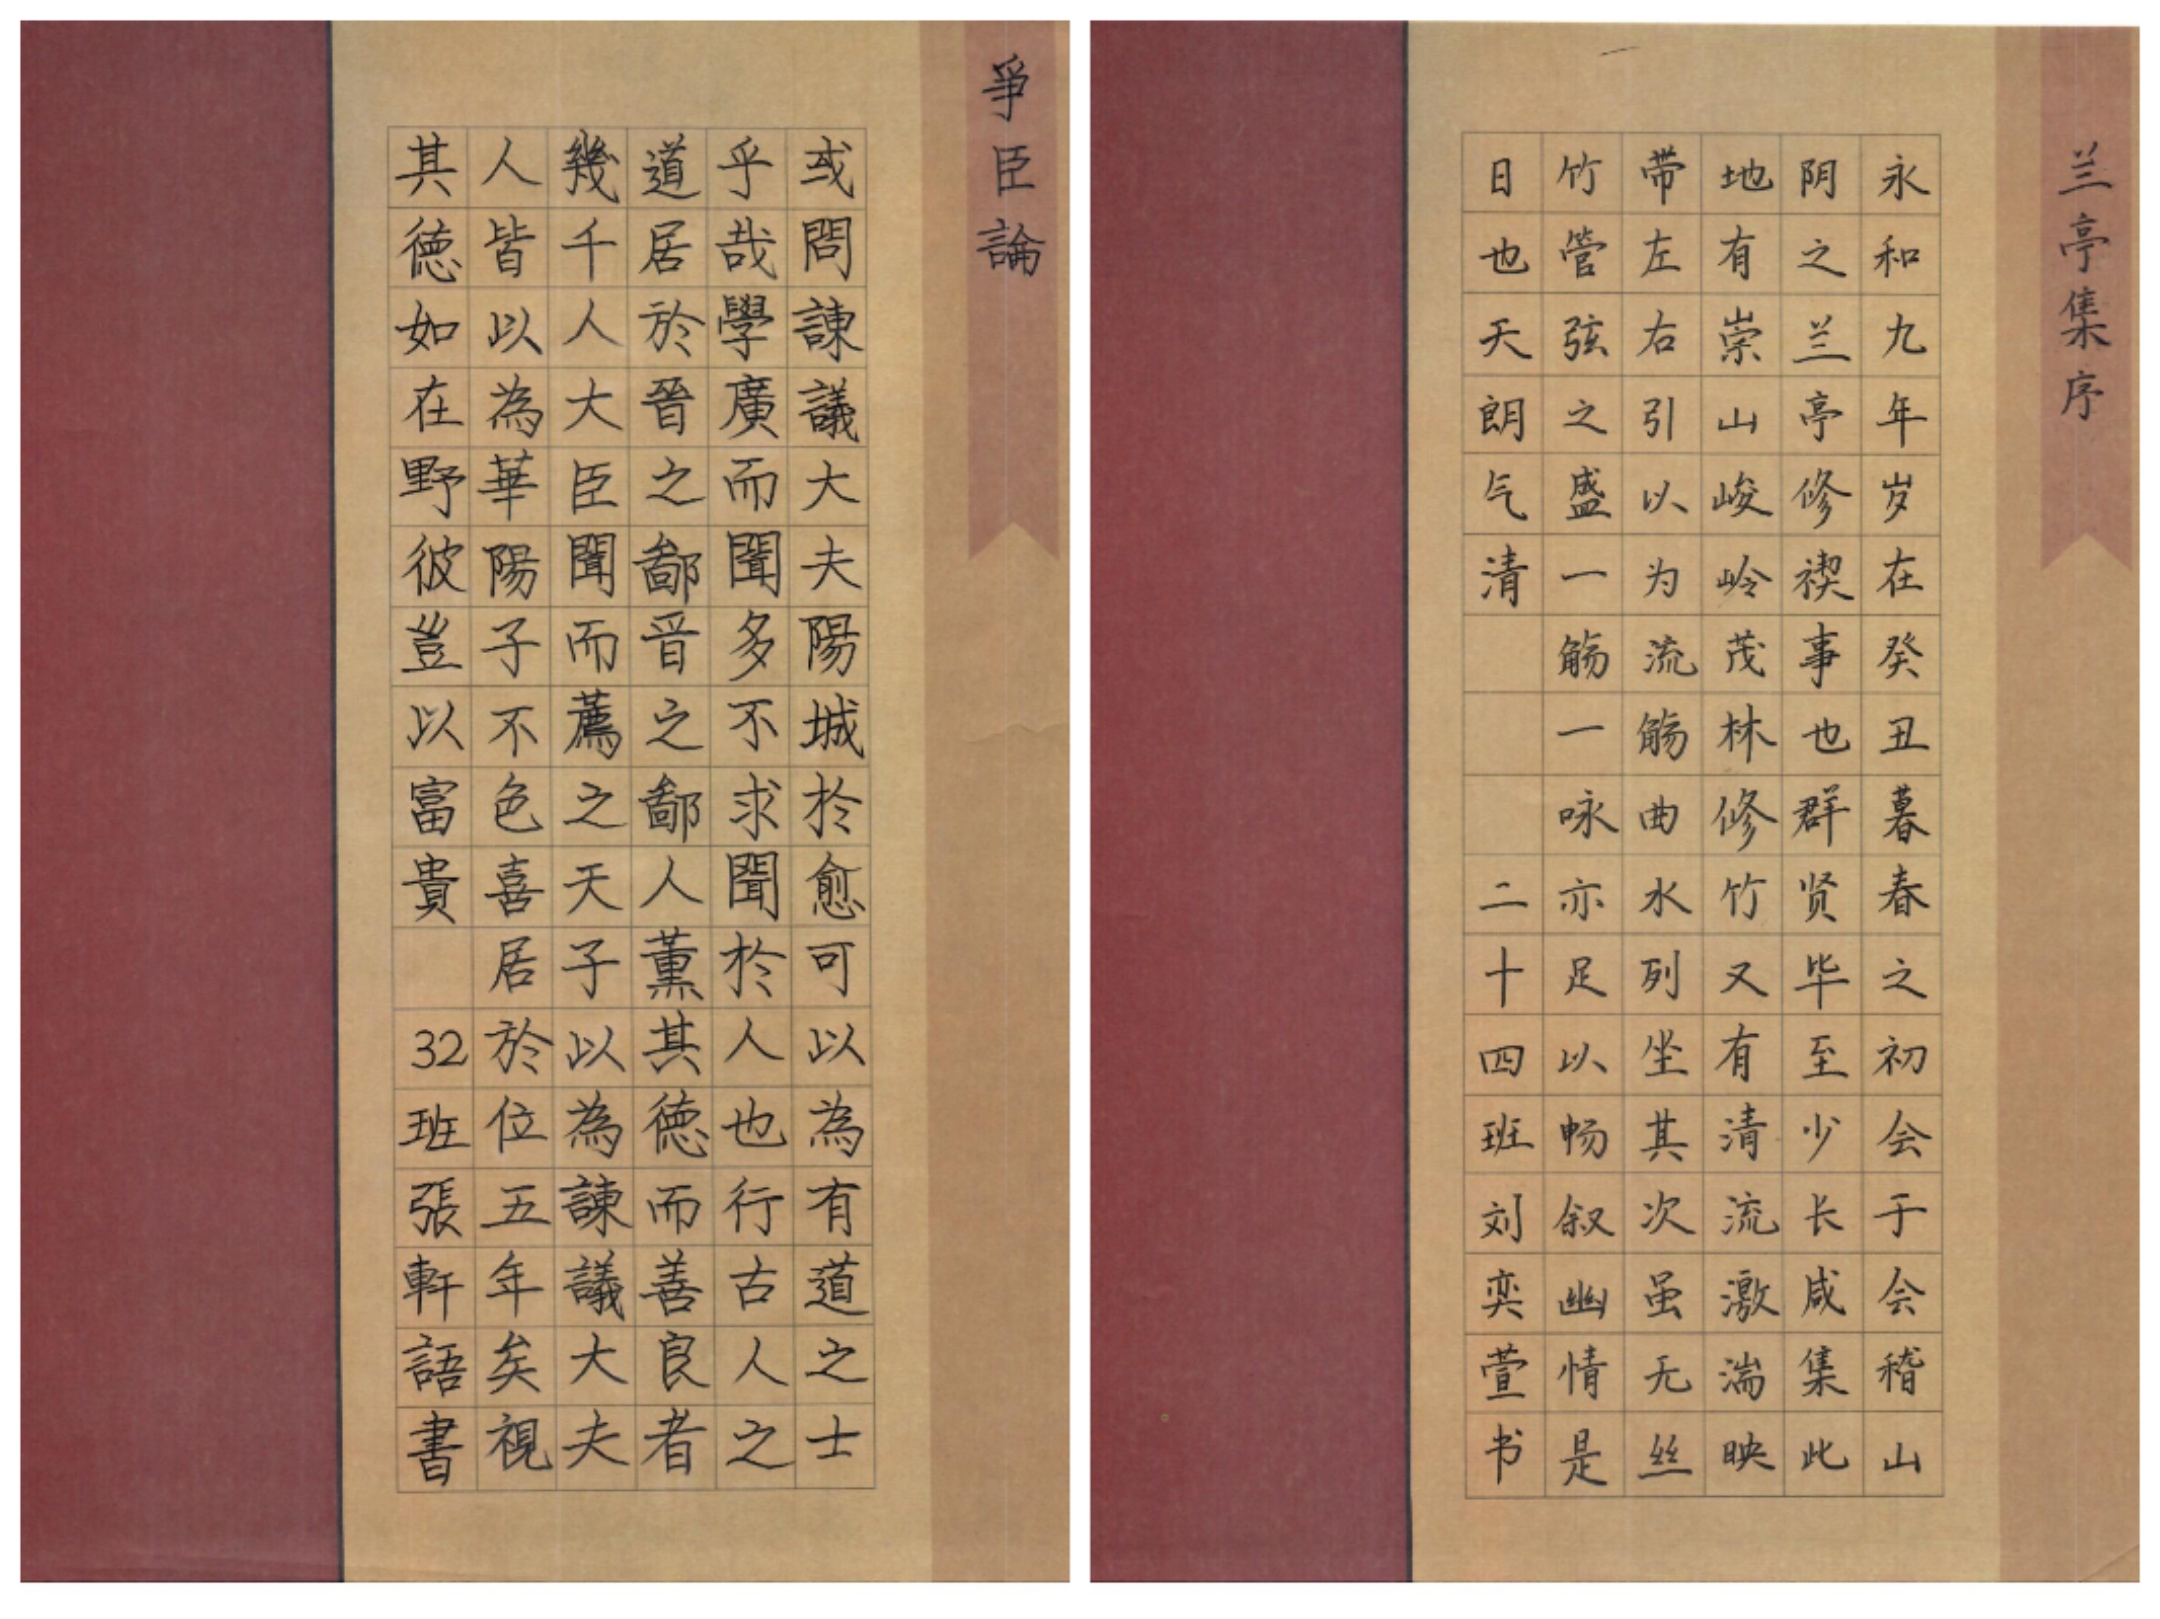 爭臣論
或問諫議大夫陽城於愈可以為有道之士
乎哉學廣而聞多不求聞於人也行古人之
道居於晉之鄙晋之鄙人薰其德而善良者
幾千人大臣聞而薦之天子以為諫議大夫
人皆以為華陽子不色喜居於位五年矣視
其德如在野彼豈以富貴 32班張軒語書
兰亭集序
永和九年岁在癸丑暮春之初会于会稽山
阴之兰亭修禊事也群贤毕至少长咸集此
地有崇山峻岭茂林修竹又有清流激湍映
带左右引以为流觞曲水列坐其次虽无丝
竹管弦之盛一觞一咏亦足以畅叙幽情是
日也天朗气清 二十四班刘奕萱书